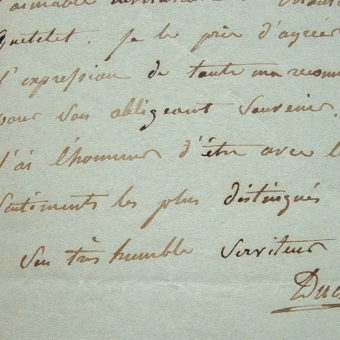 l'aimable
Quetelet. Je le prie d'agréer
l'expression de toute ma reconn
pour son obligeant souvenir.
J'ai l'honneur d'être avec l
sentiments les plus distingués
son très humble serviteur
Duc